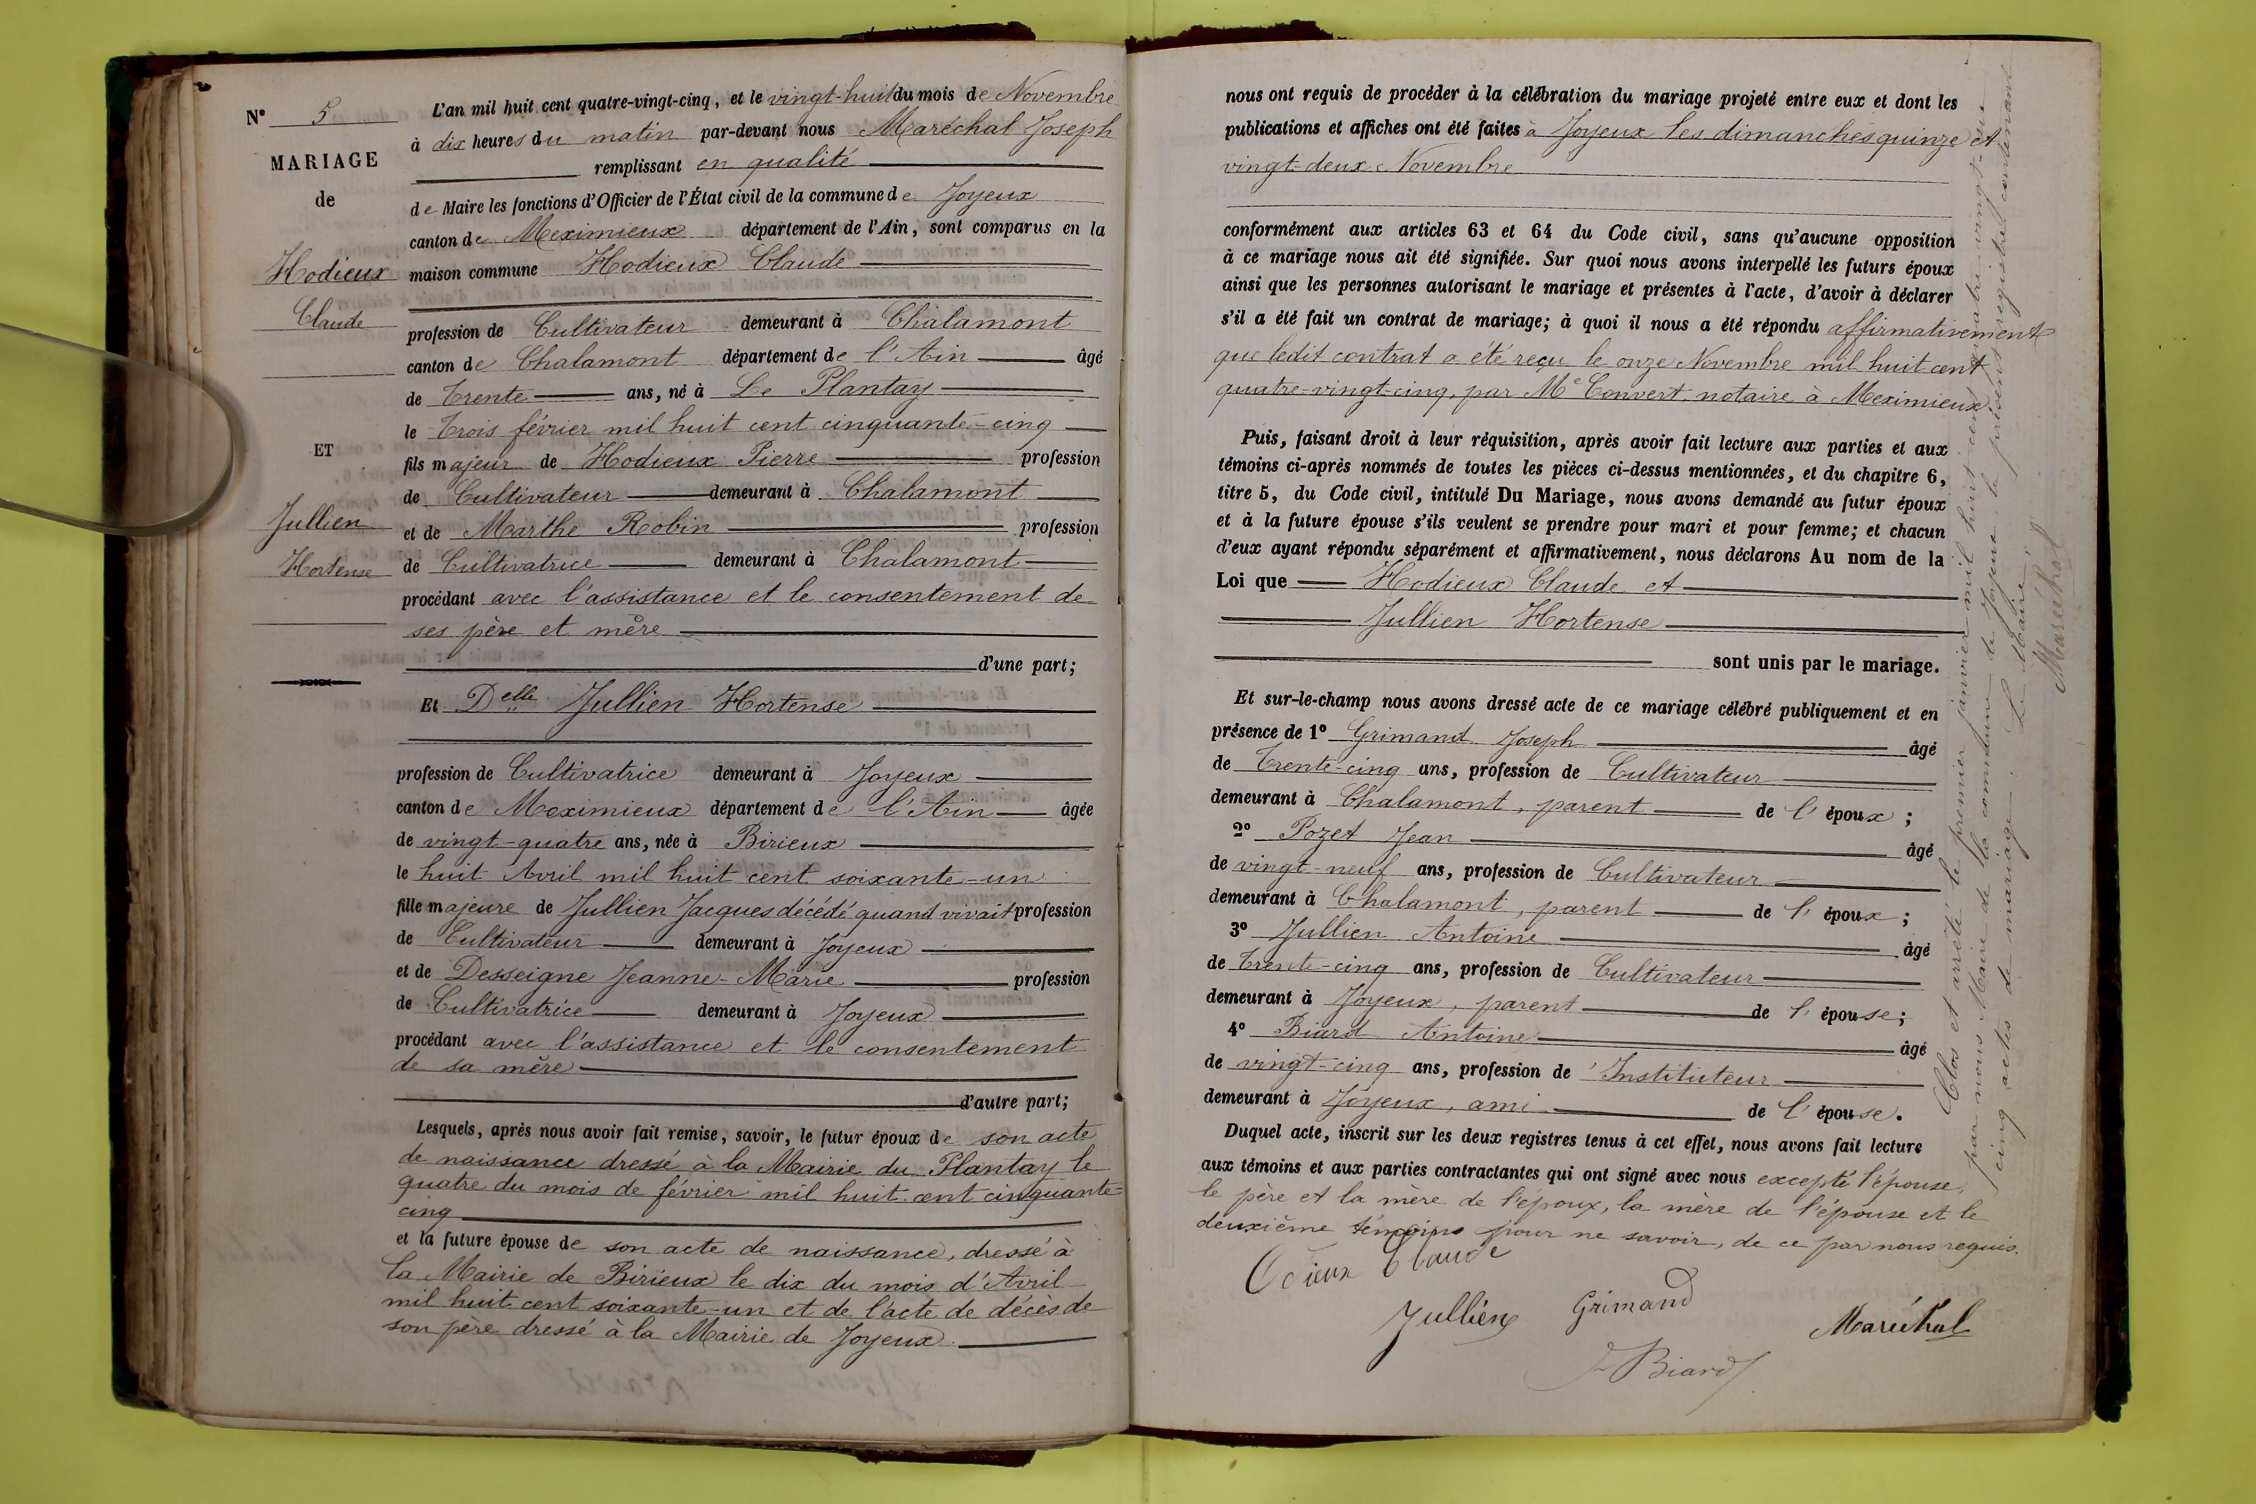 N° 5
MARIAGE
de
Hodieux
Claude
ET
Jullien
Hortense
L'an mil huit cent quatre-vingt-cinq, et le vingt-huit du mois de Novembre
à dix heures du matin par-devant nous Maréchal Joseph
remplissant en qualité
de Maire les fonctions d'Officier de l'État civil de la commune de Joyeux
canton de Meximieux département de l'Ain, sont comparus en la
maison commune Hodieux Claude
profession de Cultivateur demeurant à Chalamont
canton de Chalamont département de l'Ain âgé
de trente ans, né à Le Plantay
le trois février mil huit cent cinquante-cinq
fils majeur de Hodieux Pierre profession
de Cultivateur demeurant à Chalamont
et de Marthe Robin profession
de Cultivatrice demeurant à Chalamont
procédant avec l'assistance et le consentement de
ses père et mère
d'une part;
Et Delle Jullien Hortense
profession de Cultivatrice demeurant à Joyeux
canton de Meximieux département de l'Ain âgée
de vingt-quatre ans, née à Birieux
le huit Avril mil huit cent soixante-un
fille majeure de Jullien Jacques décédé quand vivait profession
de Cultivateur demeurant à Joyeux
et de Desseigne Jeanne-Marie profession
de Cultivatrice demeurant à Joyeux
procédant avec l'assistance et le consentement
de sa mère
d'autre part;
Lesquels, après nous avoir fait remise, savoir, le futur époux de son acte
de naissance dressé à la Mairie du Plantay le
quatre du mois de février mil huit cent cinquante-
cinq
et la future épouse de son acte de naissance, dressé à
la Mairie de Birieux le dix du mois d'Avril
mil huit cent soixante-un et de l'acte de décès de
son père dressé à la Mairie de Joyeux.
nous ont requis de procéder à la célébration du mariage projeté entre eux et dont les
publications et affiches ont été faites à Joyeux les dimanches quinze et
vingt-deux Novembre
conformément aux articles 63 et 64 du Code civil, sans qu'aucune opposition
à ce mariage nous ait été signifiée. Sur quoi nous avons interpellé les futurs époux
ainsi que les personnes autorisant le mariage et présentes à l'acte, d'avoir à déclarer
s'il a été fait un contrat de mariage; à quoi il nous a été répondu affirmativement
que ledit contrat a été reçu le onze Novembre mil huit cent
quatre-vingt-cinq, par Me Convert notaire à Meximieux.
Puis, faisant droit à leur réquisition, après avoir fait lecture aux parties et aux
témoins ci-après nommés de toutes les pièces ci-dessus mentionnées, et du chapitre 6,
titre 5, du Code civil, intitulé Du Mariage, nous avons demandé au futur époux
et à la future épouse s'ils veulent se prendre pour mari et pour femme; et chacun
d'eux ayant répondu séparément et affirmativement, nous déclarons Au nom de la
Loi que Hodieux Claude et
Jullien Hortense
sont unis par le mariage.
Et sur-le-champ nous avons dressé acte de ce mariage célébré publiquement et en
présence de 1° Grimand Joseph âgé
de trente-cinq ans, profession de Cultivateur
demeurant à Chalamont, parent de l'époux;
2° Pozet Jean âgé
de vingt-neuf ans, profession de Cultivateur
demeurant à Chalamont, parent de l'époux;
3° Jullien Antoine âgé
de trente-cinq ans, profession de Cultivateur
demeurant à Joyeux, parent de l'épouse;
4° Biard Antoine âgé
de vingt-cinq ans, profession de Instituteur
demeurant à Joyeux, ami de l'épouse.
Duquel acte, inscrit sur les deux registres tenus à cet effet, nous avons fait lecture
aux témoins et aux parties contractantes qui ont signé avec nous excepté l'épouse,
le père et la mère de l'époux, la mère de l'épouse et le
deuxième témoins pour ne savoir, de ce par nous requis.
Odieux Claude
Jullien Grimand Maréchal
Biard
Clos et arrêté le premier janvier mil huit cent quatre-vingt-six
par nous Maire de la commune de Joyeux le présent registre contenant
cinq actes de mariage. Le Maire,
Maréchal